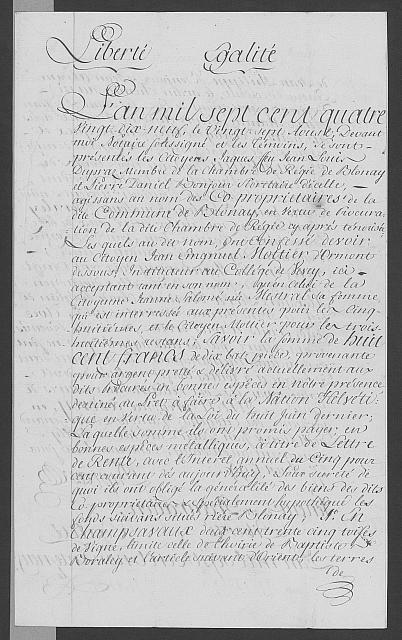 Liberté Egalité
L'an mil sept cent quatre
vingt dix neuf, le vingt sept Aoust, Devant
moi Notaire soussigné et les témoins, se sont
présentés les Citoyens Jaques feu Jean Louis
Dupraz Membre de la Chambre de Régie de Blonay
et Pierre Daniel Bonjour Secretaire d'icelle,
agissans au nom des Co-proprietaires de la
dite Commune de Blonay, en vertu de procura-
tion de la dite Chambre de Régie cy après ténorisée
Les quels au dit nom, ont confessé devoir
au Citoyen Jean Emanuel Mottier d'Ormont
dessous, Instituteur au Collège de Vevey, ici
acceptant tant en son nom, qu'en celui de la
Citoyenne Jeanne Salomé née Mestral sa femme,
qui est interressée aux présentes pour les cinq
huitièmes, et le Citoyen Mottier pour les trois
huitièmes restans; Savoir la somme de huit
cent francs de dix batz pièce, provenante
pour argent prêté & délivré actuellement aux
dits en bonnes espèces en notre présence
destiné au Prêt à faire à la Nation Helvéti-
que en vertu de la Loi du huit Juin dernier;
La quelle somme ils ont promis payer, en
bonnes espèces métalliques, à titre de Lettre
de Rente, avec l'Interet annuel du Cinq pour
cent courant dès aujourd'huy. Pour sureté de
quoi ils ont obligé la généralité des biens des dits
Co-proprietaires & spécialement hypothéqué les
fonds suivans situés rière Blonay 1°. En
Champsavaux deux cent trente cinq toises
de Vigne, limite celle de l'hoirie de Baptiste
et l'article suivant d'Orient, les terres
de